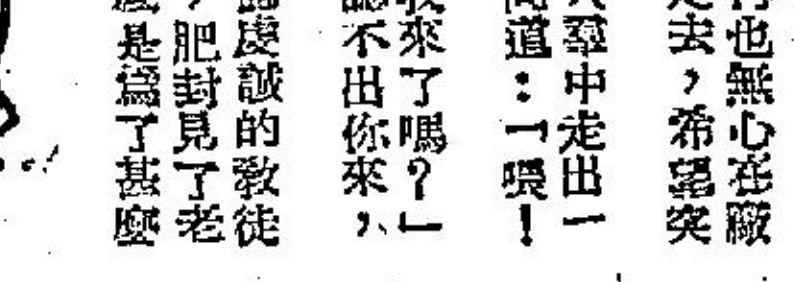 也無心在廠
去，希望突
羣中走出一
道：「喂！
來了嗎？」
不出你來，
虔誠的教徒
肥封見了老
是為了甚麼